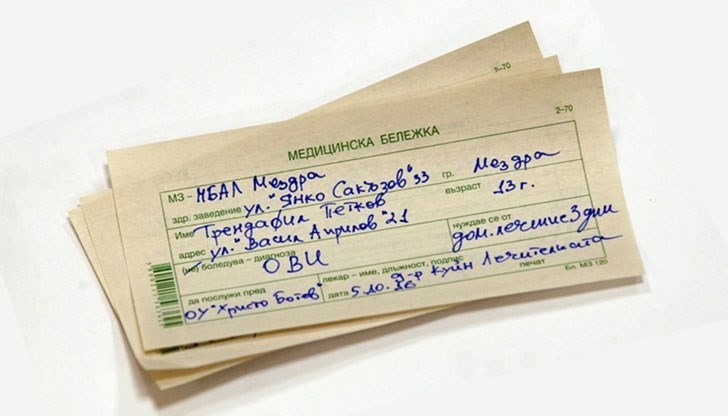 2-70
2-70
МЕДИЦИНСКА БЕЛЕЖКА
МЗ - МБАЛ Мездра гр. Мездра
здр. заведение ул. "Янко Сакъзов" 33 възраст 13 г.
Име Трендафил Петков
адрес ул. "Васил Априлов" 21 нуждае се от
(не) боледува - диагноза ОВИ дом. лечение 3 дни
да послужи пред лекар – име, длъжност, подпис д-р Куин Лечителката
ОУ "Христо Ботев" дата 5.10.16 печат
Бл. МЗ 120